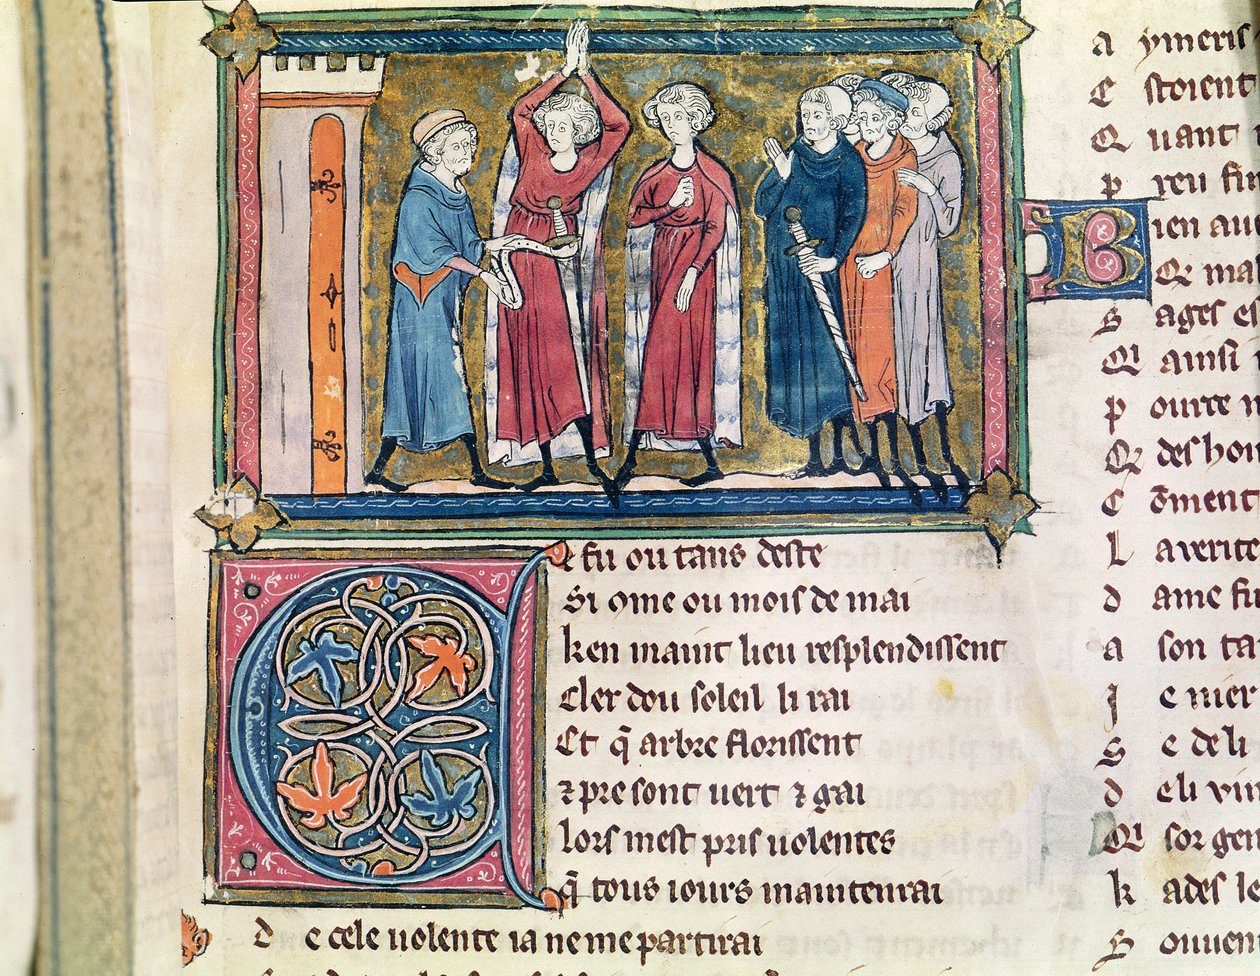 Ce fu ou tans deste
Si ome ou mois de mai
ken maint lieu resplendissent
Cler dou soleil li rai
Et q̃ arbre florissent
⁊ pre sont uert ⁊ gai
lors mest pris uolentes
q̃ tous iours maintenrai
De cele uolente ia ne me partirai
aymeris
Estoient
Quant
B
ien
Q ma
Sages el
Qi ainsi
pour
Q des hon
C õment
La uerite
dame fu
a son ta
Je
Se de li
deli
Qi sor gen
kades le
Souuen